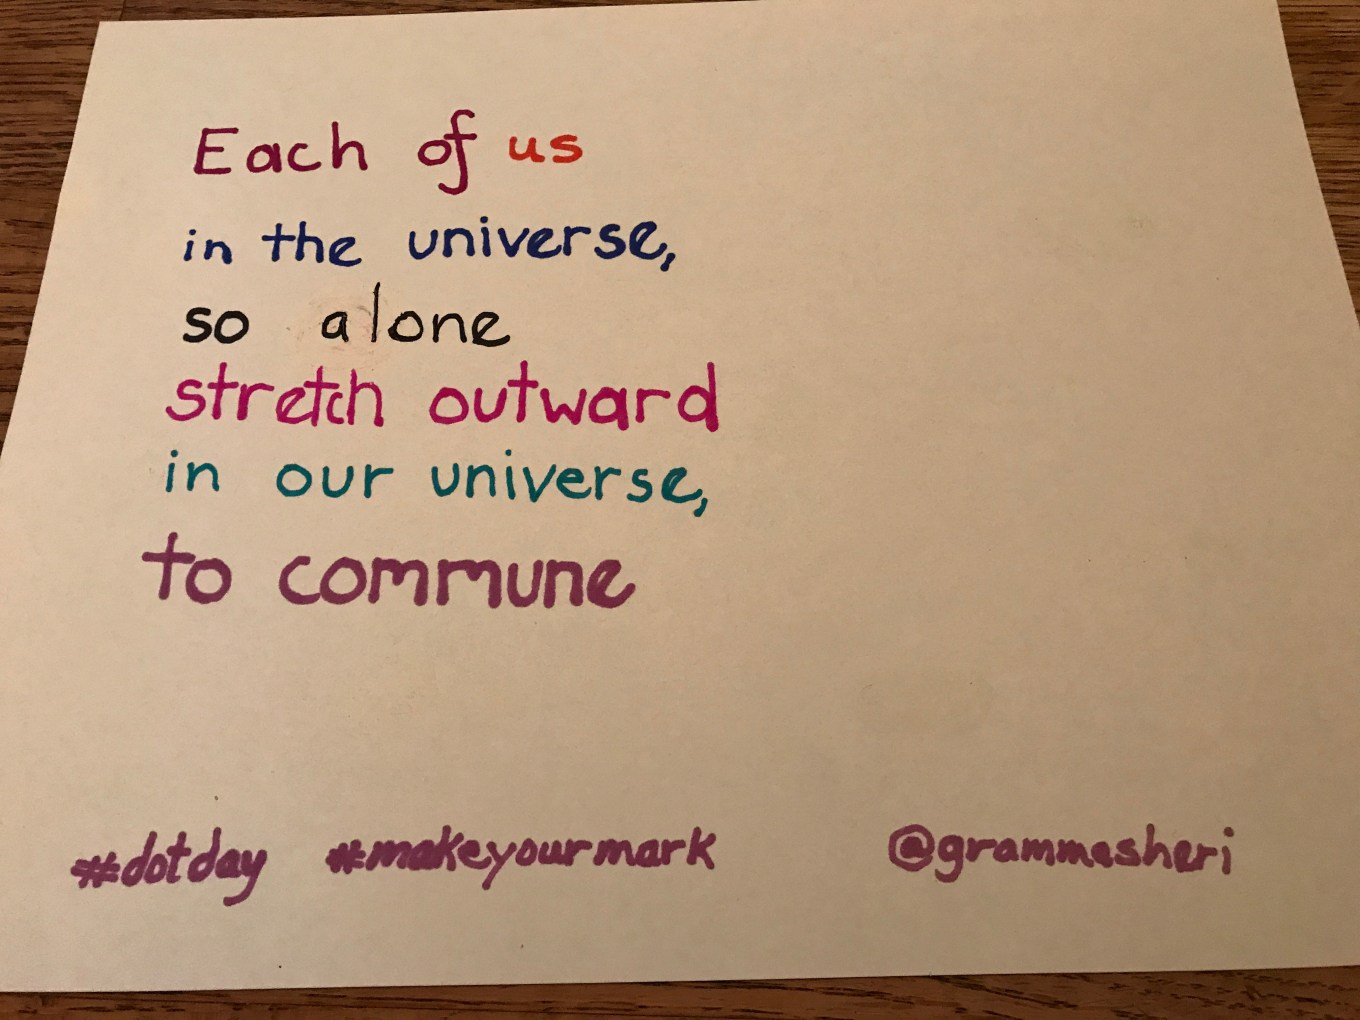 Each of us
in the universe,
so alone
stretch outward
in our universe,
to commune
#dotday #makeyourmark @grammasheri